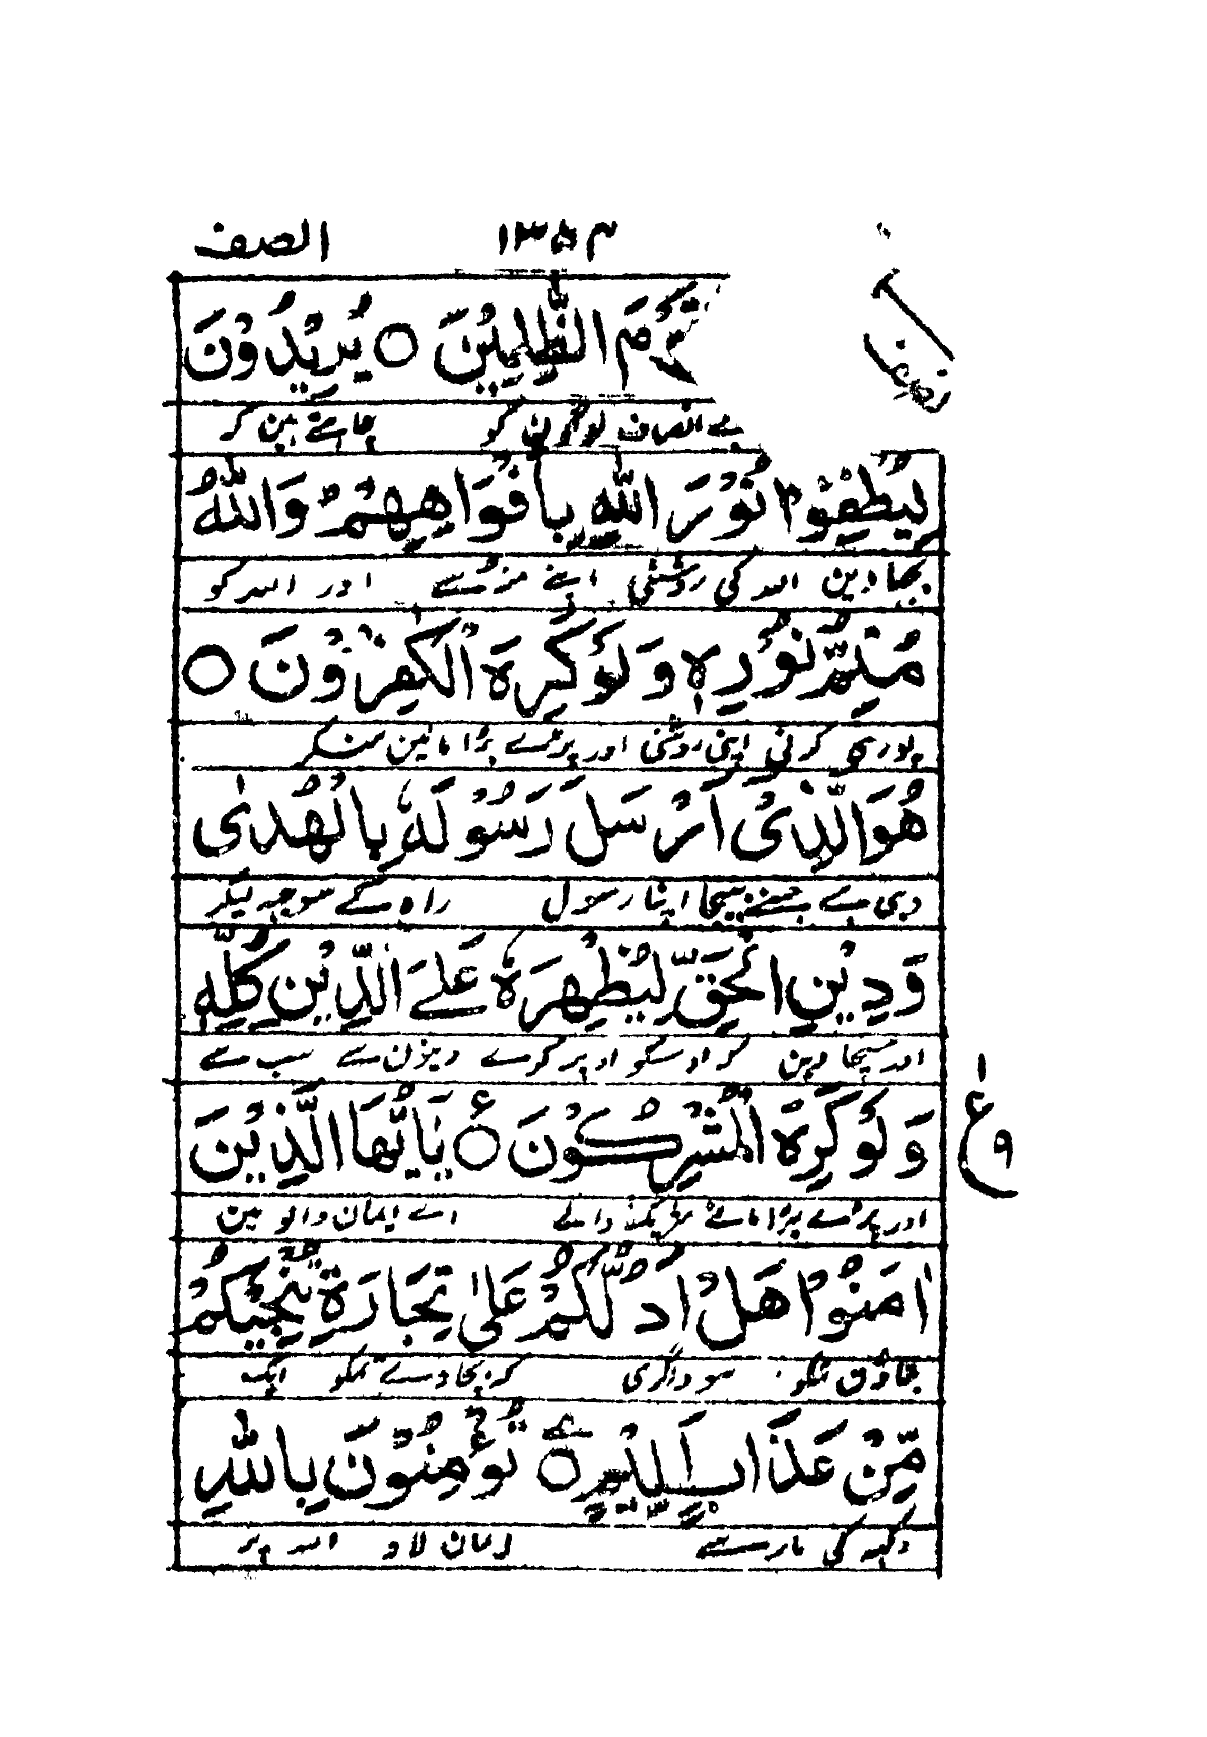 الصف ۱۳۵۴
الظّٰلِمِیْنَ ○ یُرِیْدُوْنَ
بے انصاف لوگوں کو چاہتے ہین کہ
لِیُطْفِئُوْا نُوْرَ اللّٰهِ بِاَفْوَاهِهِمْ وَاللّٰهُ
بجھا دین اللہ کی روشنی اپنے منہ سے اور اللہ کو
مُتِمُّ نُوْرِهٖ وَلَوْ كَرِهَ الْكٰفِرُوْنَ ○
پوری کرنی اپنی روشنی اور پڑے برا مانین منکر
هُوَ الَّذِیْۤ اَرْسَلَ رَسُوْلَهٗ بِالْهُدٰى
وہی ہے جسنے بھیجا اپنا رسول راہ کے سوجھ لیکر
وَدِیْنِ الْحَقِّ لِیُظْهِرَهٗ عَلَى الدِّیْنِ كُلِّهٖ
اور سچا دین کہ اوسکو اوپر کرے دینون سے سب سے
وَلَوْ كَرِهَ الْمُشْرِكُوْنَ ○ع یٰۤاَیُّهَا الَّذِیْنَ
اور پڑے برا مانے شریک کرنے والے اے ایمان والو مین
ع ۹
اٰمَنُوْا هَلْ اَدُلُّكُمْ عَلٰى تِجَارَةٍ تُنْجِیْكُمْ
بتاؤن تمکو سوداگری کہ بچاوے تمکو ایک
مِّنْ عَذَابٍ اَلِیْمٍ ○ تُؤْمِنُوْنَ بِاللّٰهِ
دکھ کی مار سے ایمان لاو اللہ پر